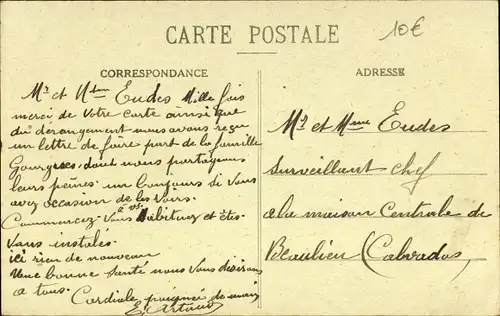 CARTE POSTALE
10€
CORRESPONDANCE
Mr et Mme Eudes Mille fois
merci de Votre Carte ainsi que
du dérangement nous avons reçu
un lettre de faire part de la famille
dont nous partageons
leurs peines un bonjours si Vous
avez occasion de les Voirs.
Commencez Vous à vs Habituez et êtes
Vous instales.
ici rien de nouveau
Une bonne santé nous Vous désirons
a tous.
Cordiale poignée de main
E. Artaud
ADRESSE
Mr et Mme Eudes
Surveillant chef
a la maison Centrale de
Beaulieu (Calvados)